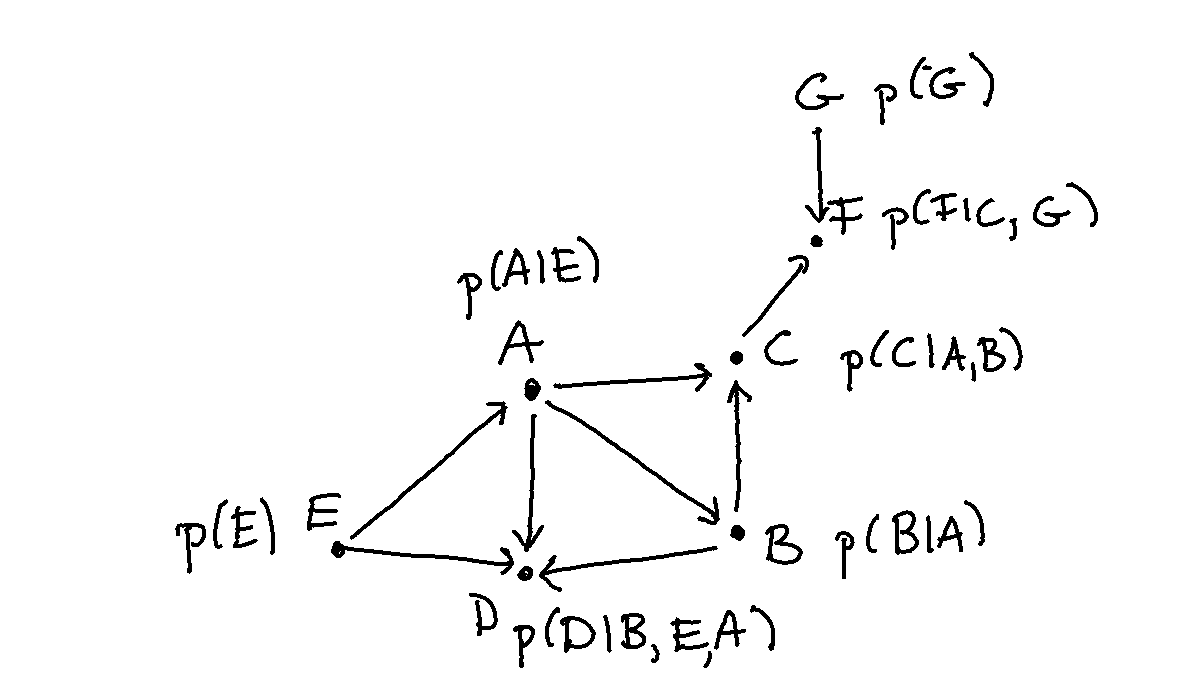 G p(G)
F p(F|C, G)
p(A|E)
A
C p(C|A,B)
p(E) E
B p(B|A)
D p(D|B, E,A)